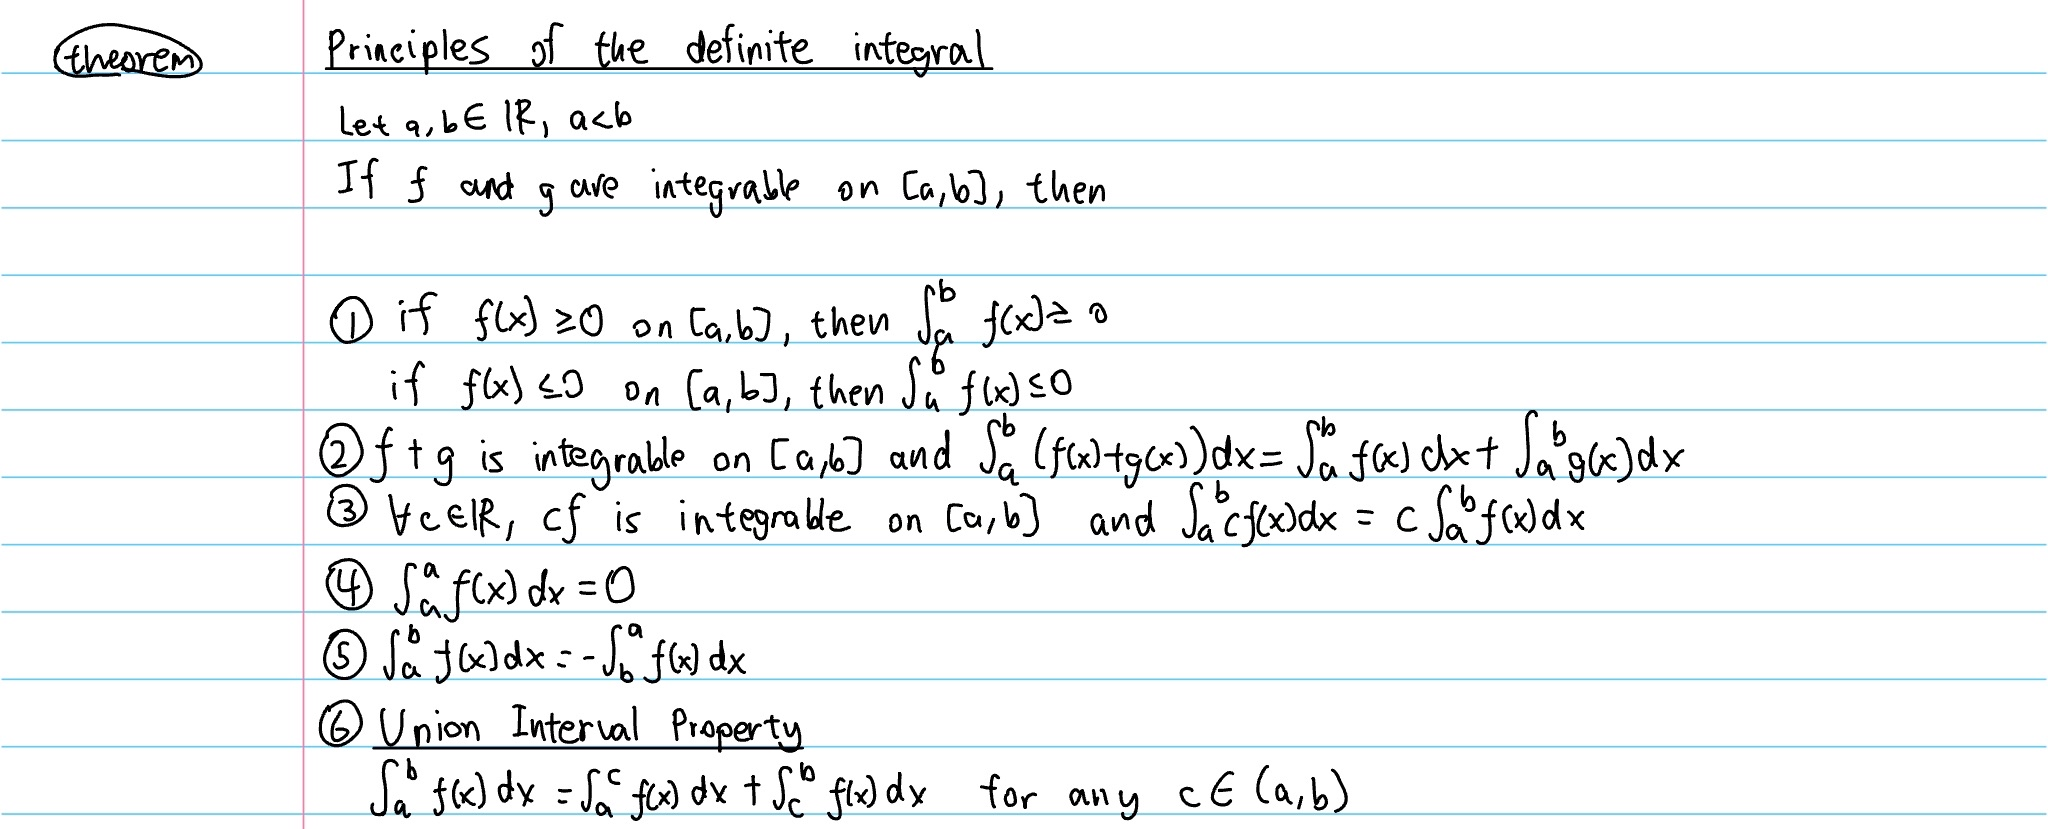 theorem Principles of the definite integral
Let a,b∈ℝ, a<b
If f and g are integrable on [a,b], then
① if f(x) ≥0 on [a,b], then ∫_a^b f(x)≥ 0
if f(x) ≤0 on [a,b], then ∫_a^b f(x)≤0
② f+g is integrable on [a,b] and ∫_a^b (f(x)+g(x))dx= ∫_a^b f(x) dx+ ∫_a^b g(x)dx
③ ∀c∈ℝ, cf is integrable on [a,b] and ∫_a^b cf(x)dx = c ∫_a^b f(x)dx
④ ∫_a^a f(x) dx =0
⑤ ∫_a^b f(x)dx =-∫_b^a f(x) dx
⑥ Union Interval Property
∫_a^b f(x) dx =∫_a^c f(x) dx + ∫_c^b f(x) dx for any c∈ (a,b)